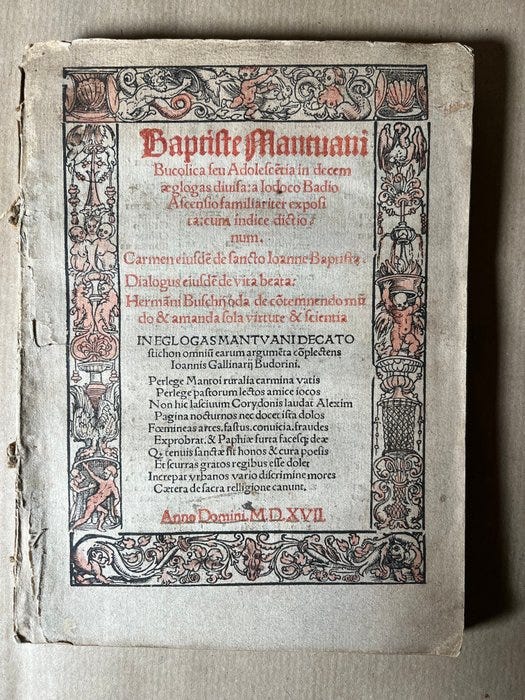 Baptiste Mantuani
Bucolica seu Adolescẽtia in decem
æglogas diuisa: a Iodoco Badio
Ascensio familiariter exposi
ta: cum indice dictio/
num.
Carmen eiusdẽ de sancto Ioanne Baptista.
Dialogus eiusdẽ de vita beata.
Hermãni Buschij oda de cõtemnendo mũ
do & amanda sola virtute & scientia
IN EGLOGAS MANTVANI DECATO
stichon omniũ earum argumẽta cõplectens
Ioannis Gallinarij Budorini.
Perlege Mantoi ruralia carmina vatis
Perlege pastorum lectos amice iocos
Non hic lasciuum Corydonis laudat Alexim
Pagina nocturnos nec docet ista dolos
Fœmineas artes, fastus, conuicia, fraudes
Exprobrat, & Paphiæ furta facesq; deæ
Q̃ tenuis sanctæ sit honos & cura poesis
Et scurras gratos regibus esse dolet
Increpat vrbanos vario discrimine mores
Cætera de sacra relligione canunt.
Anno Domini. M.D.XVII.